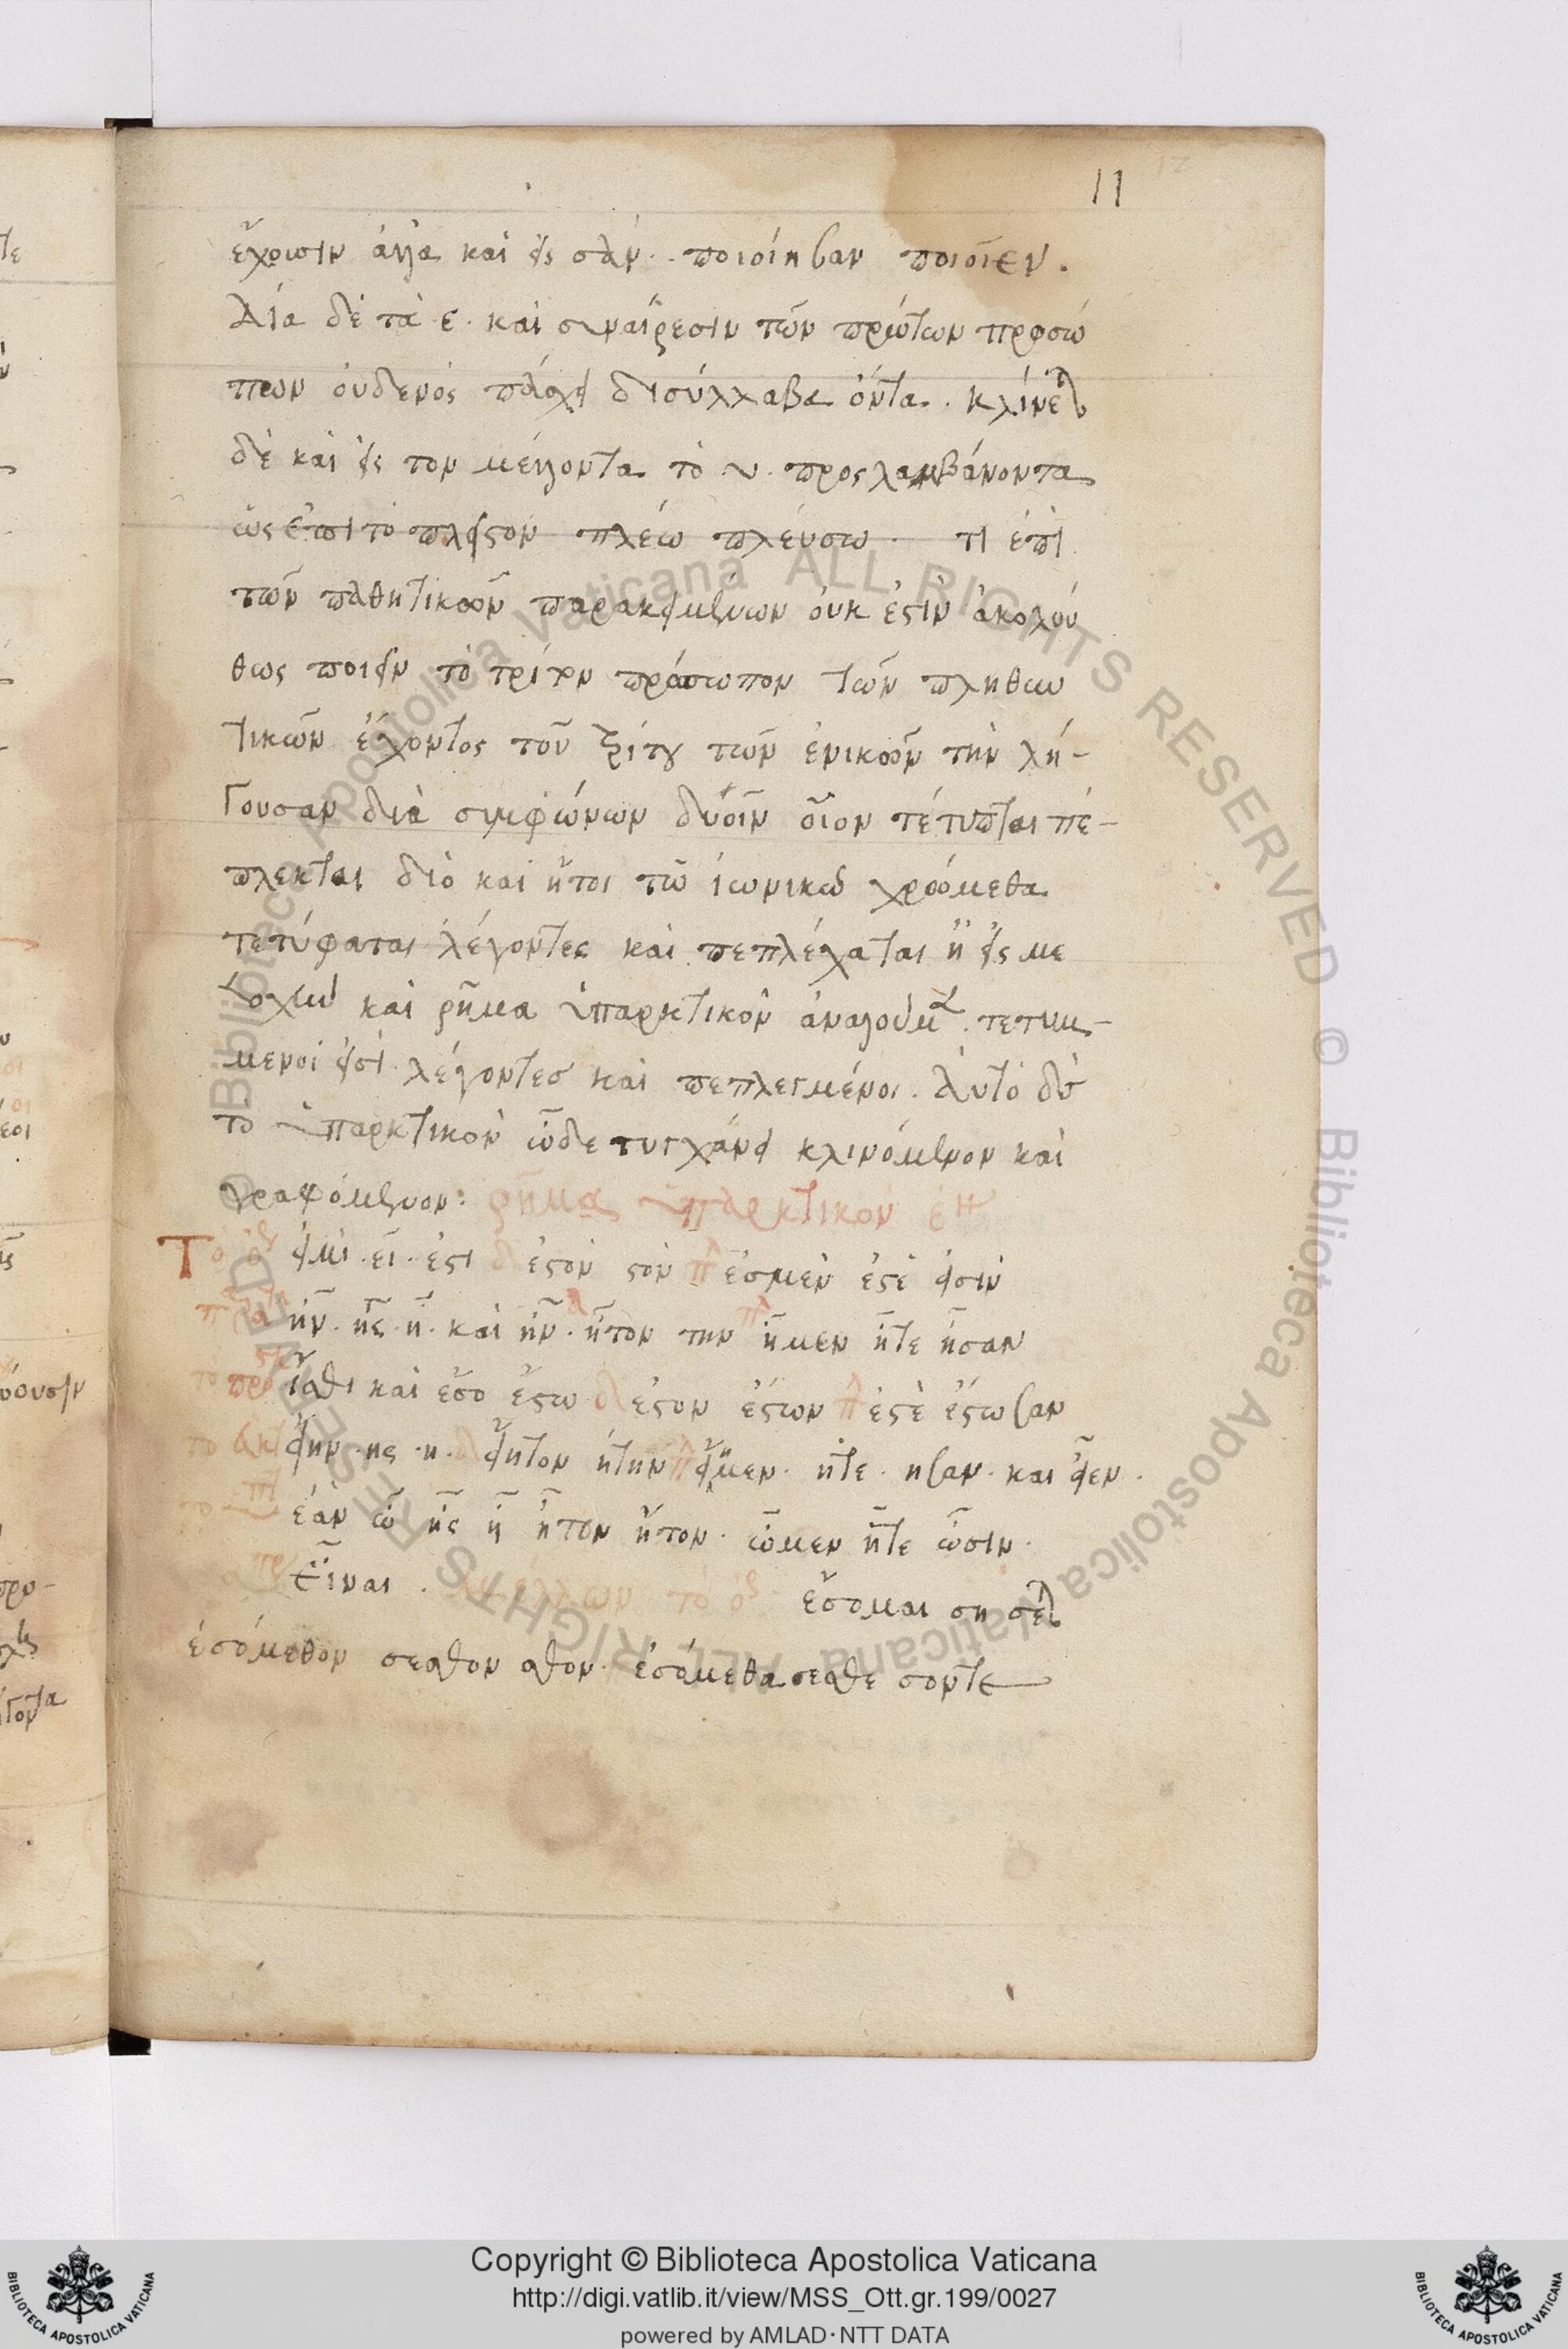 11
εὔχρηστιν ἀλλὰ καὶ εἰς σαν· ποιοίησαν ποιοῖεν.
Διὰ δὲ τὰ ε· καὶ συναίρεσιν τῶν πρώτων προσώ
πων οὐδενὸς πάσχει δισύλλαβα ὄντα. κλίνεται
δὲ καὶ εἰς τον μέλλοντα τὸ ν προς λαμβάνοντα
ὡς ἐπι τὸ πλεῖστον πλέω πλεύσω τι ἐπὶ
τῶν παθητικῶν παρακειμένων οὐκ ἐστὶν ἀκολού
θως ποιεῖν τὸ τρίτον πρόσωπον τῶν πληθυν
τικῶν ἔχοντος τοῦ τρίτου τῶν ἑνικῶν τὴν λή-
γουσαν διὰ συμφώνων δυοῖν οἷον τέτυπται πέ-
πλεκται διὸ καὶ ἤτοι τῶ ἰωνικῶ χρώμεθα
τετύφαται λέγοντες καὶ πεπλέχαται ἢ εἰς με
τοχὴν καὶ ρῆμα ὑπαρκτικὸν ἀναλύομεν. τετυμ-
μενοι εἰσὶ λέγοντεσ καὶ πεπλεγμένοι. Αὐτὸ δὲ
το ὑπαρκτικὸν ὧδε τυγχάνει κλινόμενον καὶ
γραφόμενον: ρῆμα ὑπαρκτικὸν
Το εἰμὶ·εἶ·ἐστι δ ἐστὸν στὸν π ἐσμὲν ἐστὲ εἰσὶν
ἦν·ἦς·ἦ·καὶ ἦν·ἦτον την ἦμεν ἦτε ἦσαν
το ἴσθι καὶ ἔσο ἔστω δ ἔστον ἔστων ἐστὲ ἔστωσαν
το εὐκτ εἴην·ης·η·δ εἴητον ήτην εἴημεν·ητε·ησαν·και εἶεν·
το ἐὰν ὦ ἦς ἦ ἦτον ἦτον·ὦμεν ἦτε ὦσιν·
Εἶναι. μέλλων το ἔσομαι ση σεται
ἐσόμεθον σεσθον σθον·ἐσόμεθα σεσθε σονται
Copyright © Biblioteca Apostolica Vaticana
http://digi.vatlib.it/view/MSS_Ott.gr.199/0027
powered by AMLAD·NTT DATA
© Biblioteca Apostolica Vaticana ALL RIGHTS RESERVED © Biblioteca Apostolica Vaticana ALL RIGHTS RESERVED
BIBLIOTECA APOSTOLICA VATICANA
BIBLIOTECA APOSTOLICA VATICANA